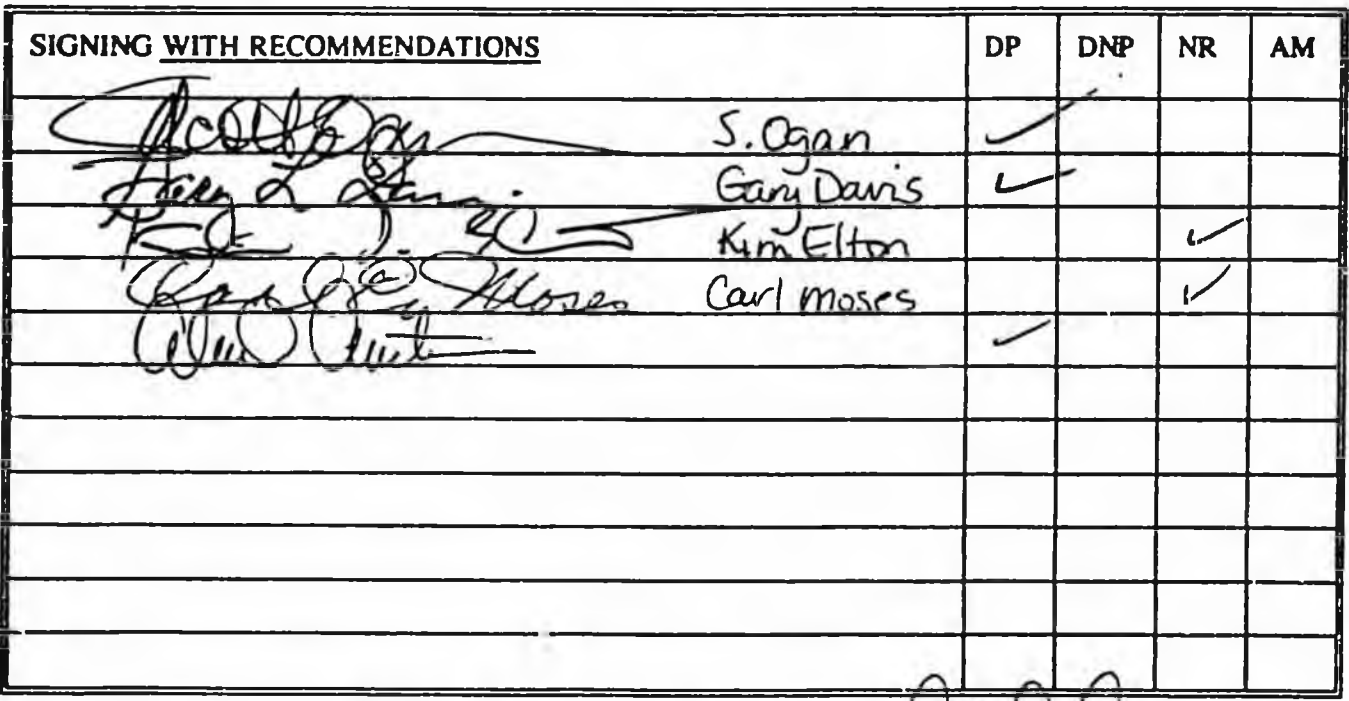 SIGNING WITH RECOMMENDATIONS DP DNP NR AM
S. Ogan ✓
Gary L Davis Gary Davis ✓
Kim Elton ✓
Carl Moses Carl Moses ✓
✓